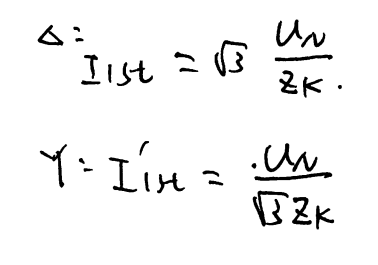 Δ: I1st = √3 UN / ZK.
Y: I'1st = UN / √3 ZK